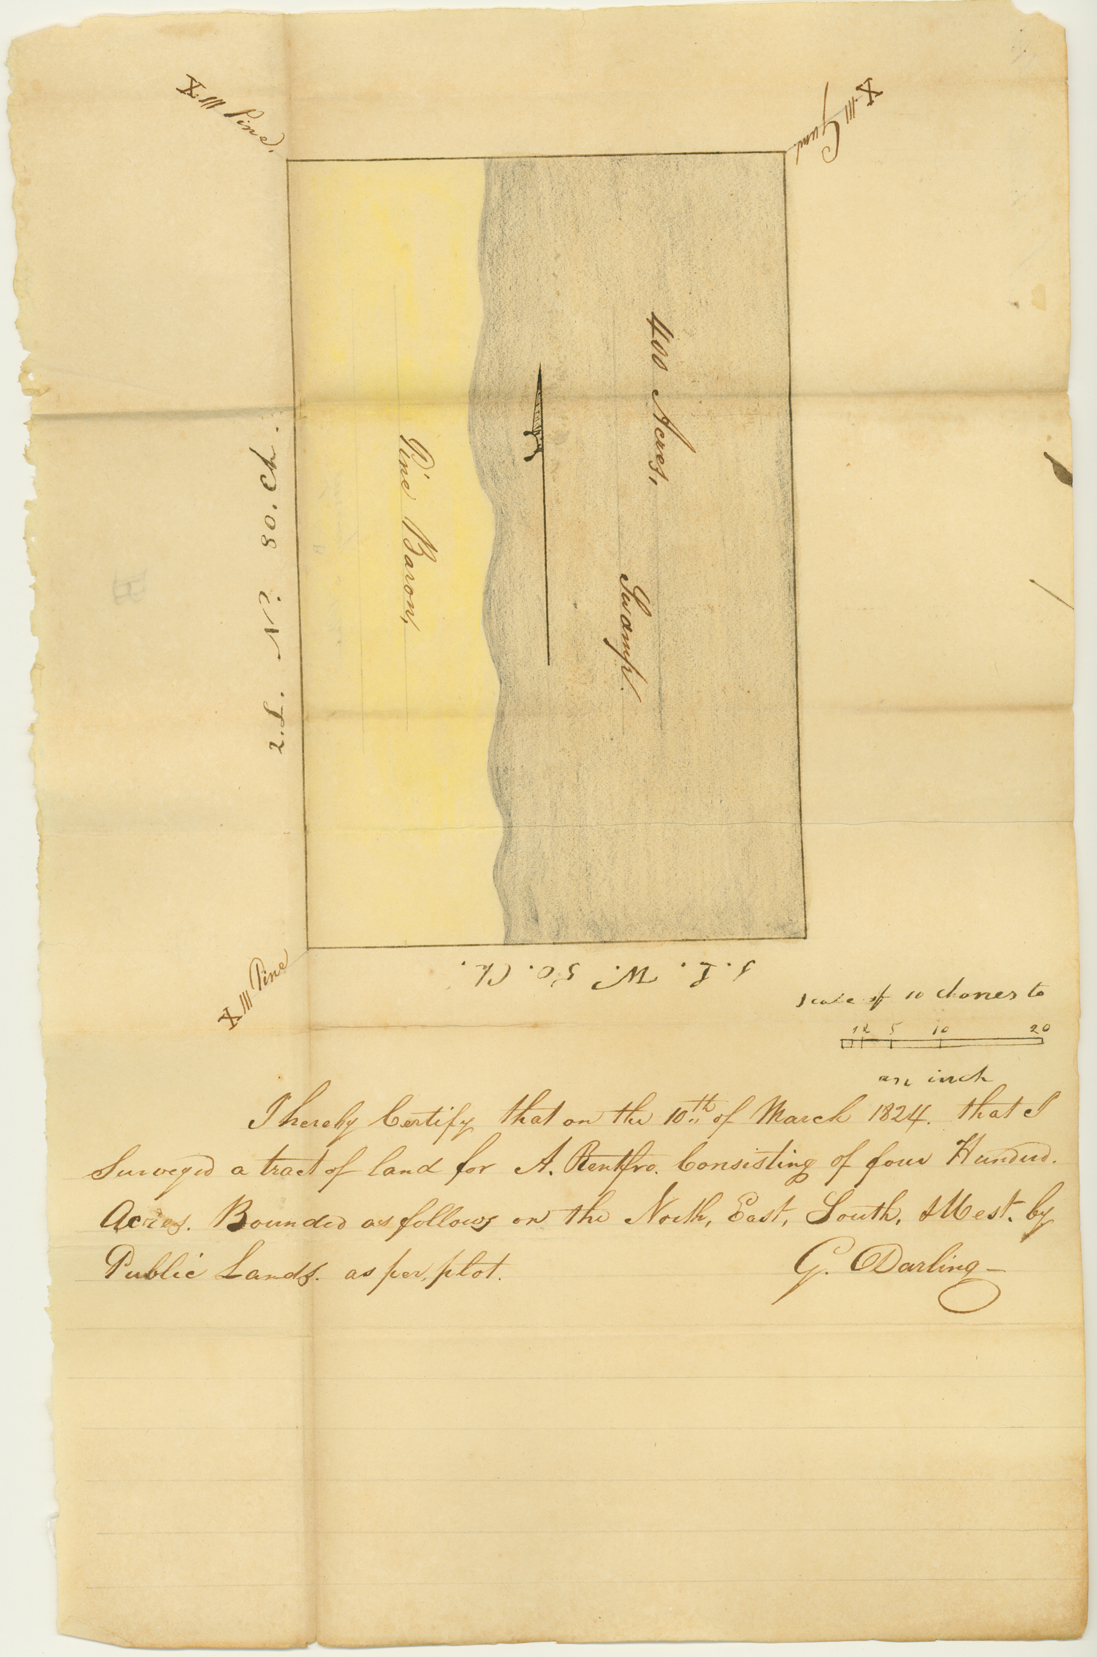 X III Pine.
X III Gum.
400 Acres,
Swamp.
Pine Baron,
2. L. N. 80. Ch.
X III Pine
1. L. W. 50. Ch.
Scale of 10 chanes to
5 10 20
an inch
I hereby Certify that on the 10th of March 1824. that I
Surveyed a tract of land for A. Rentfro. Consisting of four Hundred.
Acres. Bounded as follows on the North, East, South, & West. by
Public Lands. as per, plot.
G. Darling